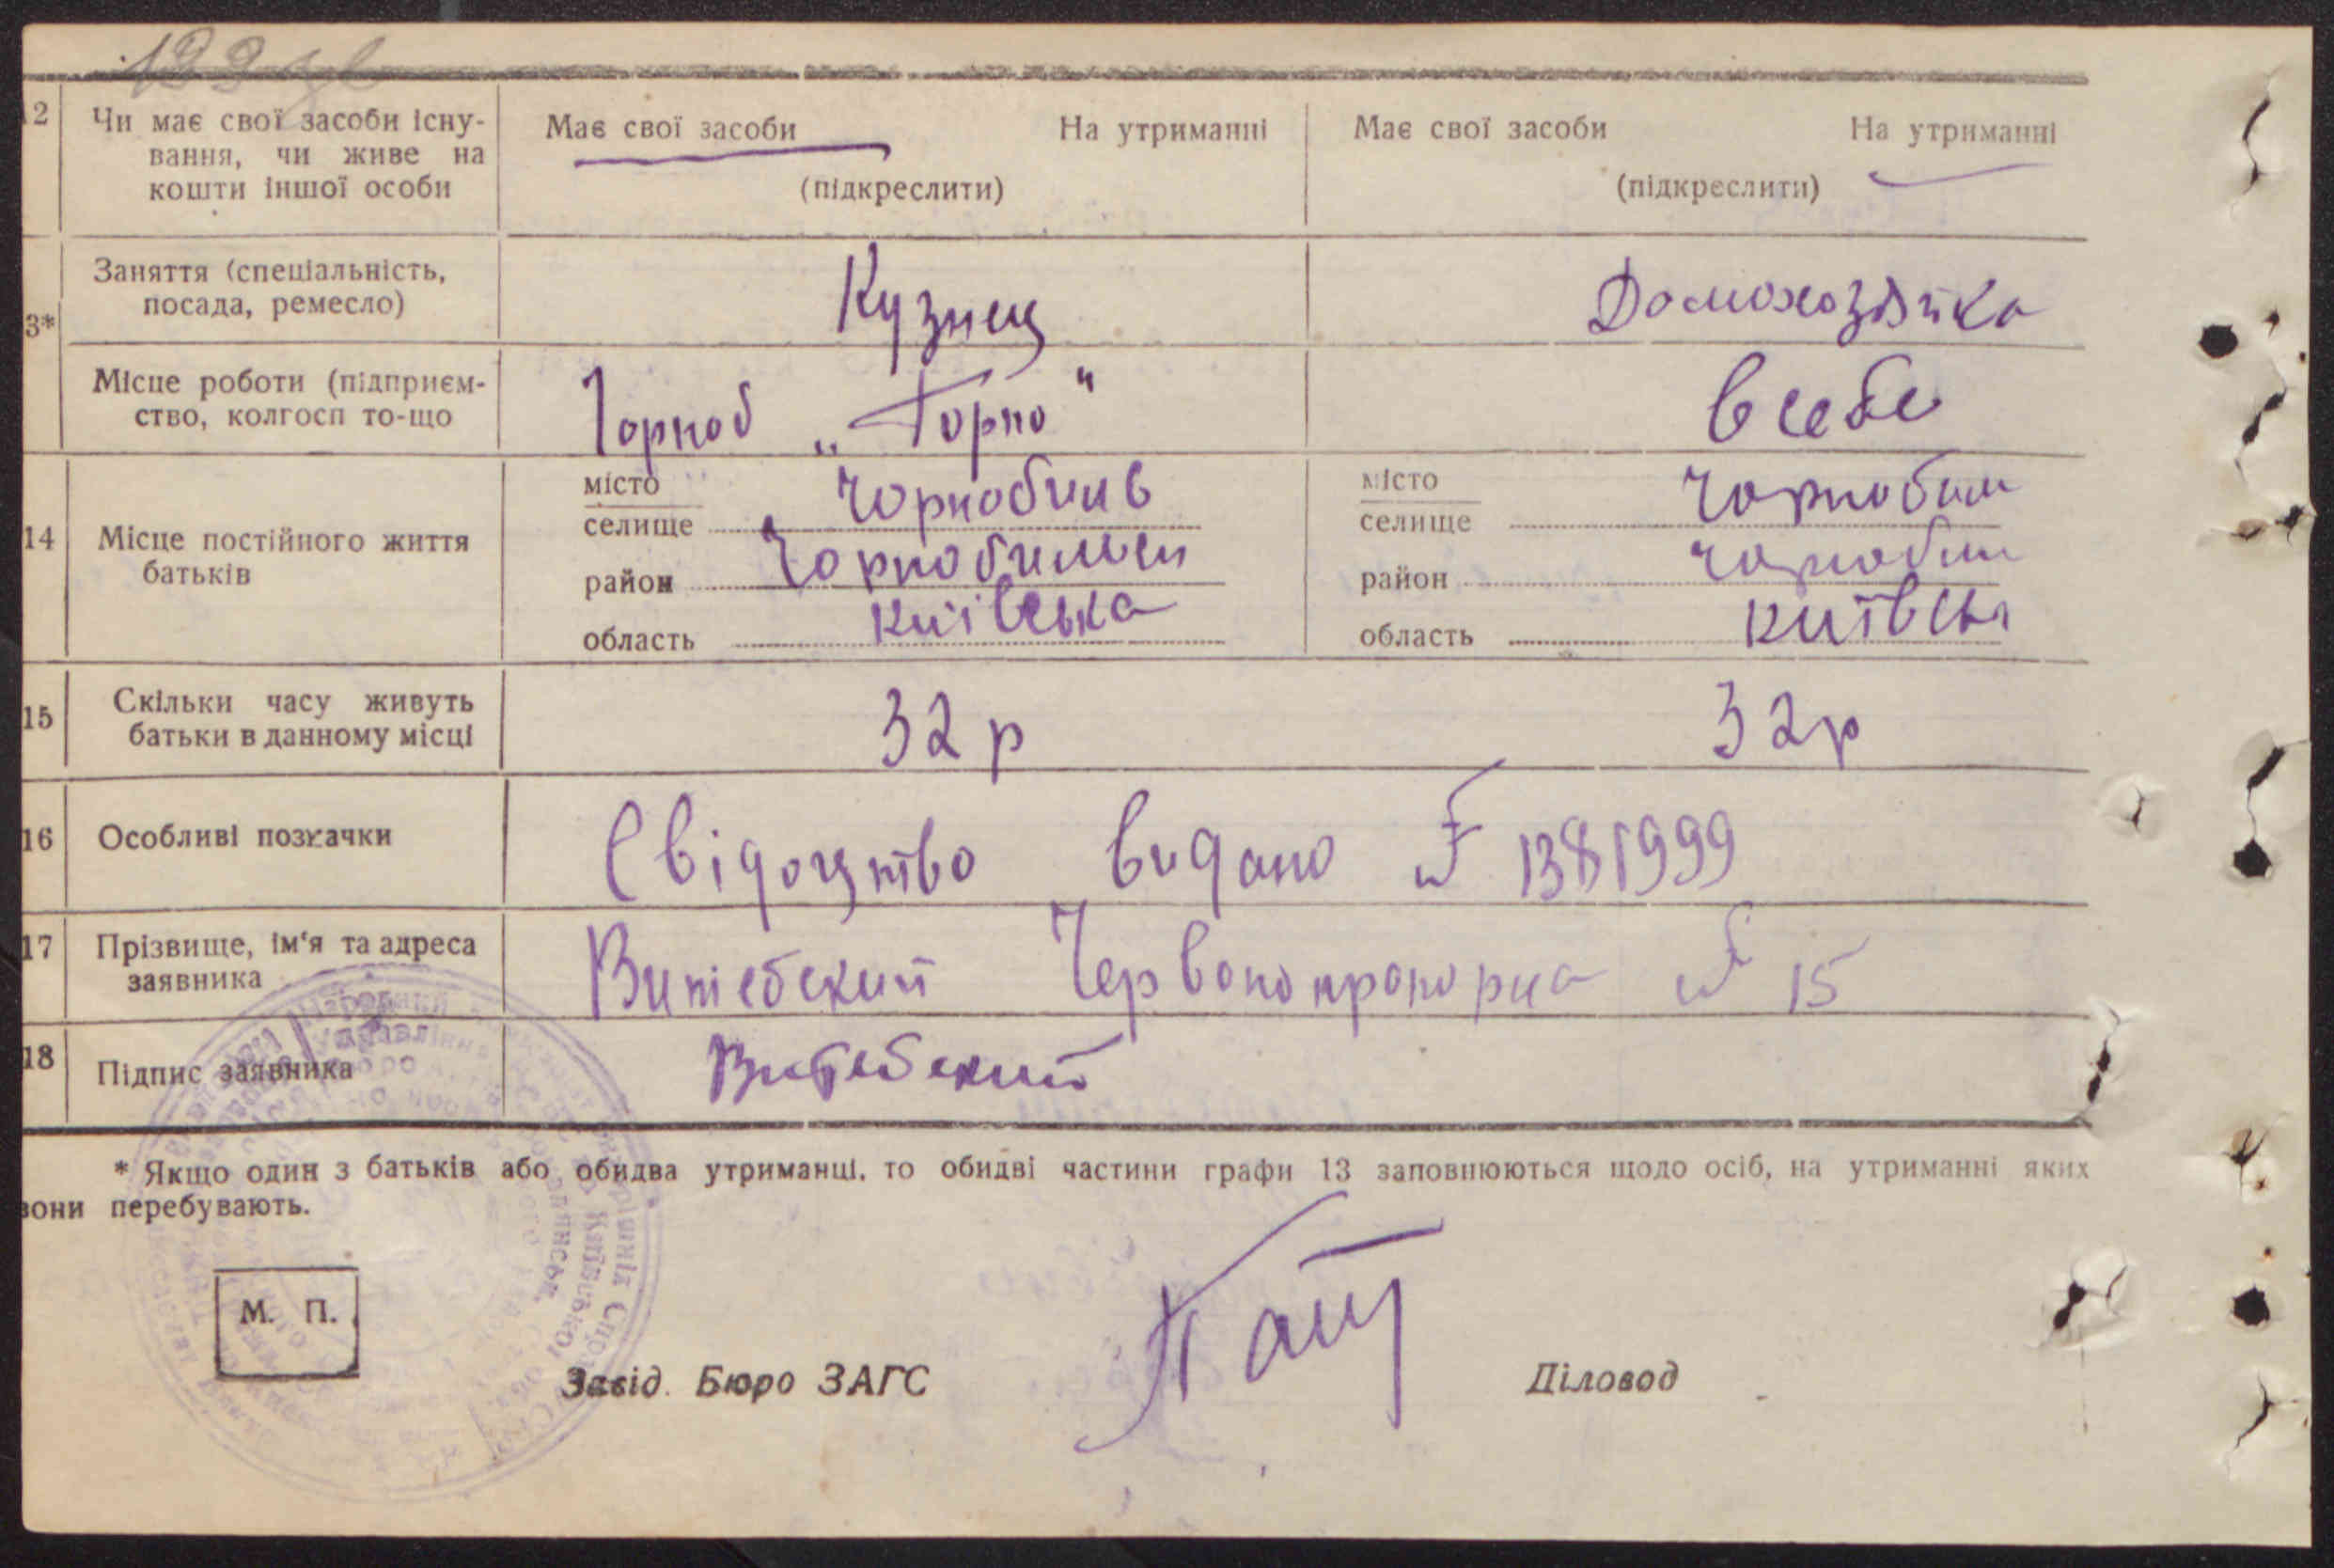 12 Чи має свої засоби існу-
вання, чи живе на
кошти іншої особи
Має свої засоби На утриманні
(підкреслити)
Має свої засоби На утриманні
(підкреслити)
3*
Заняття (спеціальність,
посада, ремесло)
Кузнец
Домохозяйка
Місце роботи (підприєм-
ство, колгосп то-що
Чорноб „Торпо"
в себе
14 Місце постійного життя
батьків
місто
селище Чорнобиль
район
область Київська
місто
селище Чорнобил
район Чорнобил
область Київськ
15 Скільки часу живуть
батьки в данному місці
32 р
32 р
16 Особливі позначки
Свідоцтво видано № 1381999
17 Прізвище, ім'я та адреса
заявника
Витебский Червонопрапорна № 15
18 Підпис заявника
Витебский
* Якщо один з батьків або обидва утриманці, то обидві частини графи 13 заповнюються щодо осіб, на утриманні яких
вони перебувають.
М. П.
Завід. Бюро ЗАГС
Діловод